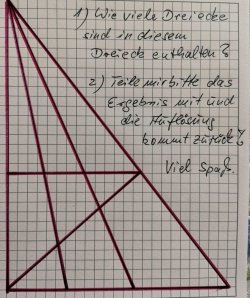 1) Wie viele Dreiecke
sind in diesem
Dreieck enthalten?
2) Teile mir bitte das
Ergebnis mit und
die Auflösung
kommt zurück?
Viel Spaß.